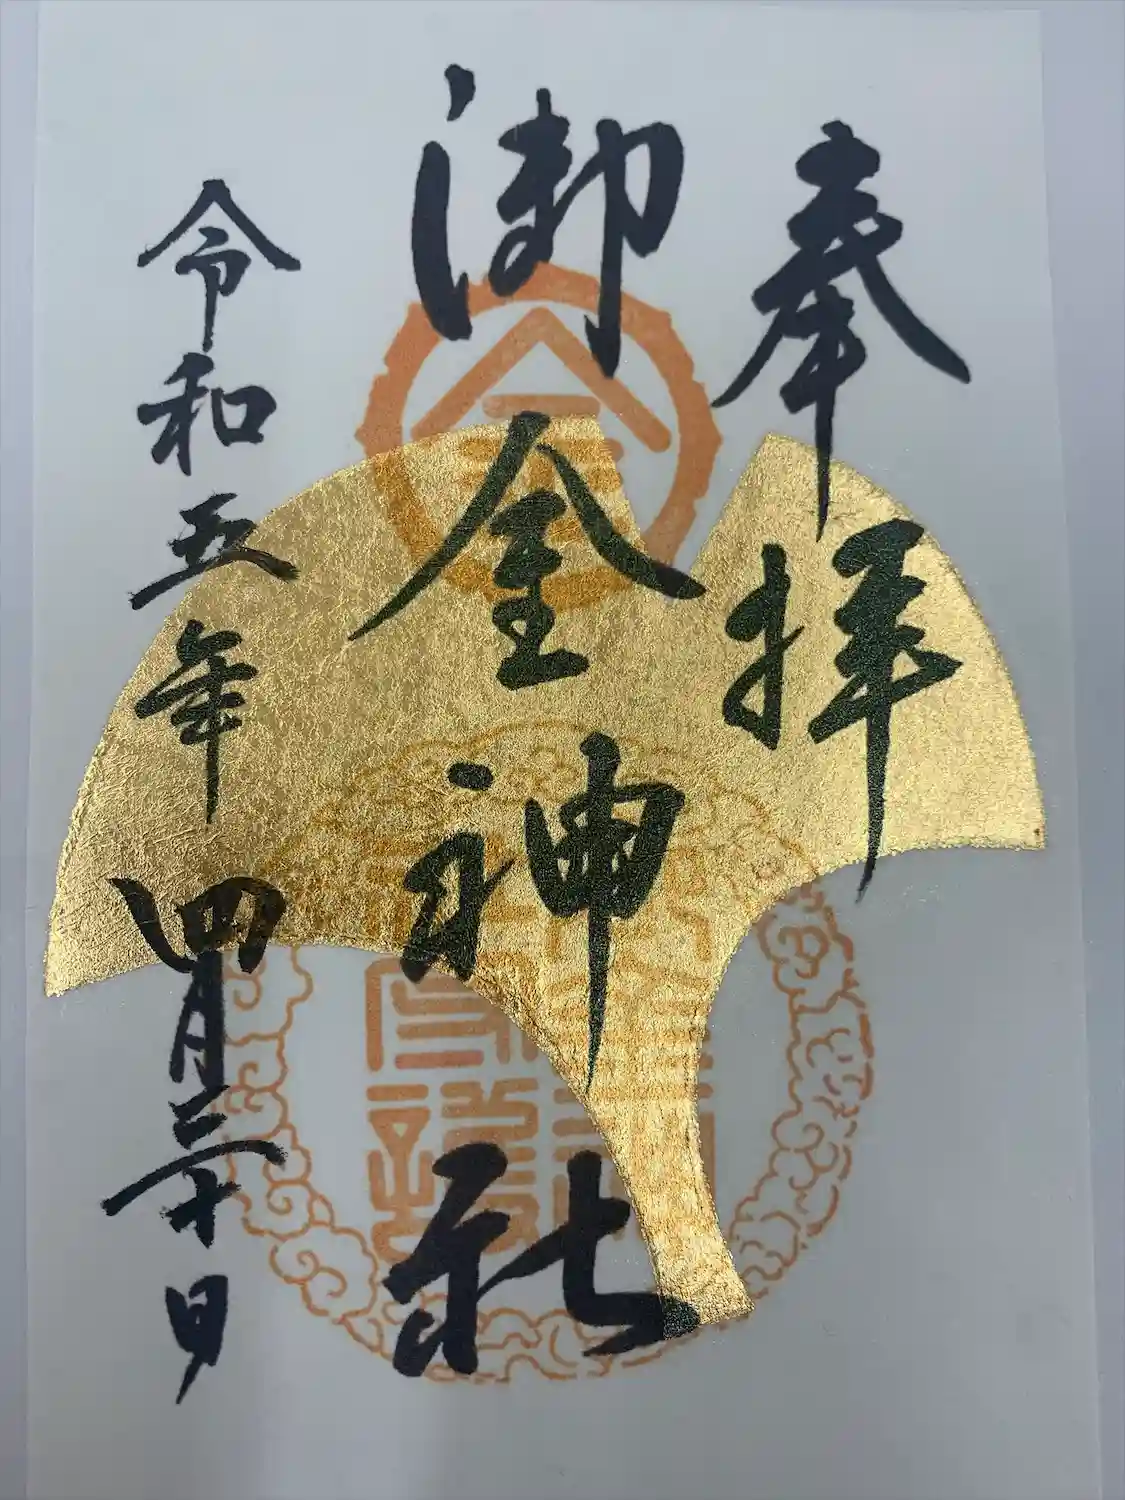 奉拝
御金神社
令和五年四月三十日